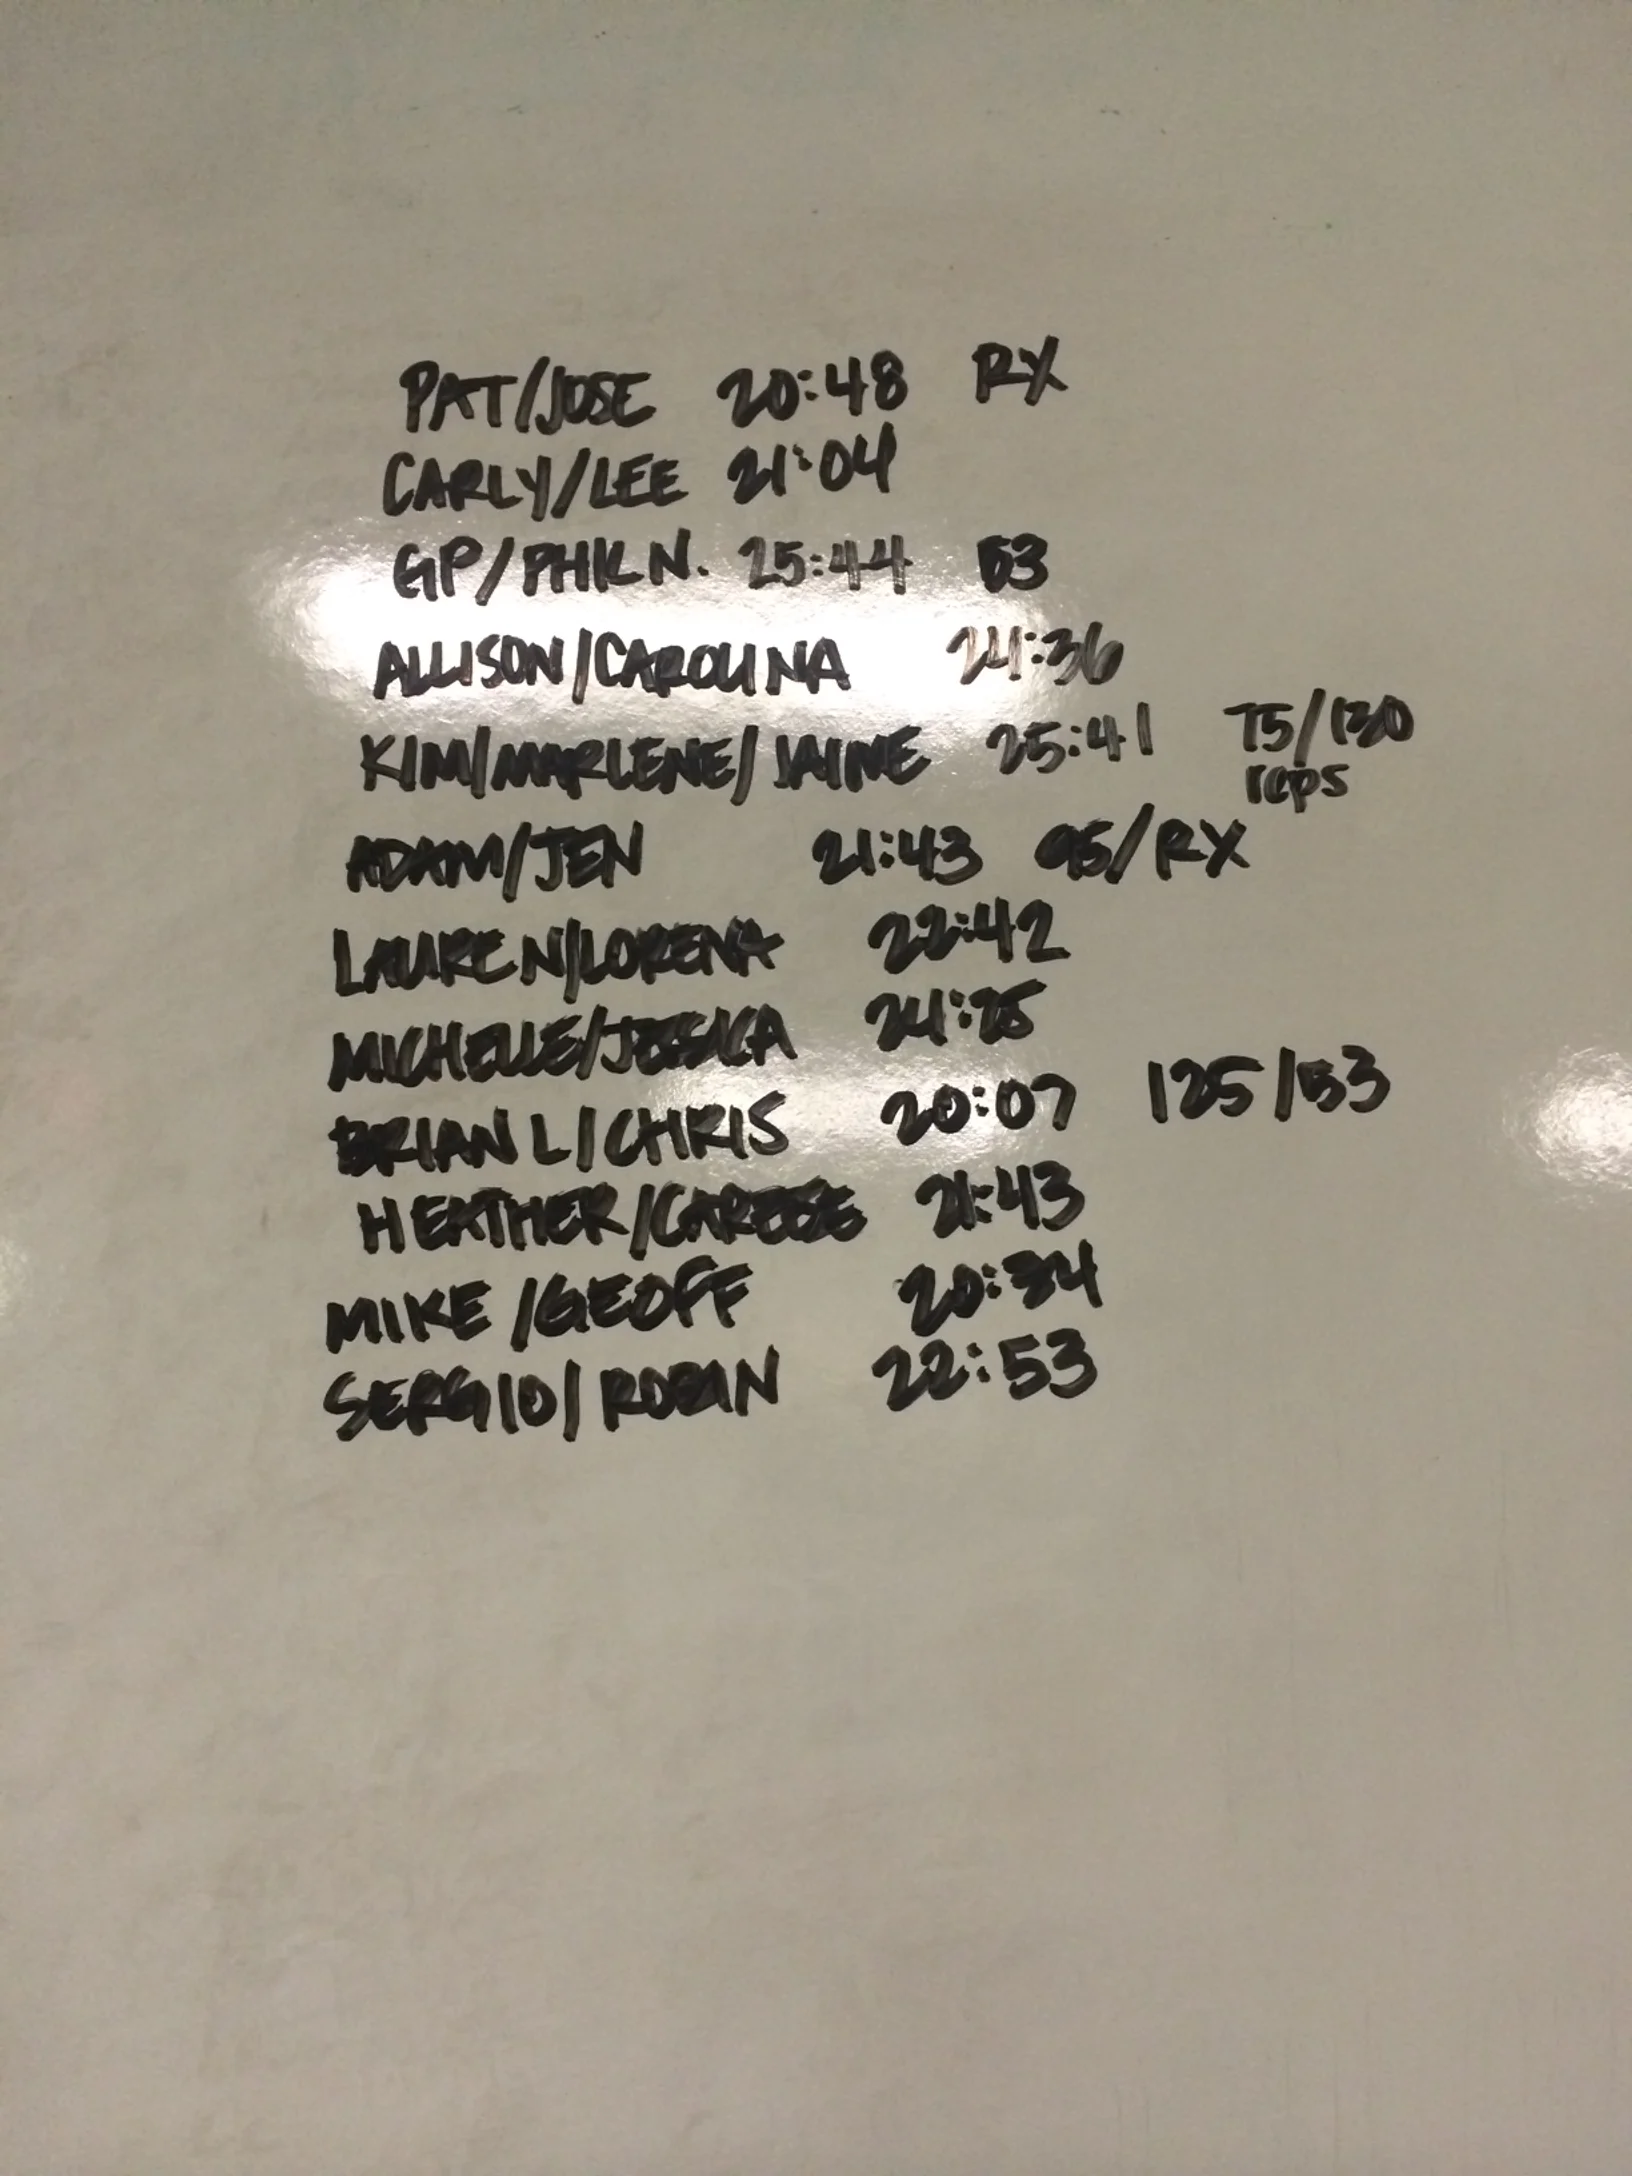 PAT/JOSE 20:48 RX
CARLY/LEE 21:04
GP/PHIL N. 25:44 53
ALLISON/CAROLINA 24:36
KIM/MARLENE/JAIME 25:41 75/130
reps
ADAM/JEN 21:43 95/RX
LAUREN/LORENA 22:42
MICHELLE/JESSICA 24:25
BRIAN L/CHRIS 20:07 125/53
HEATHER/ 21:43
MIKE/GEOFF 20:34
SERGIO/ROBIN 22:53